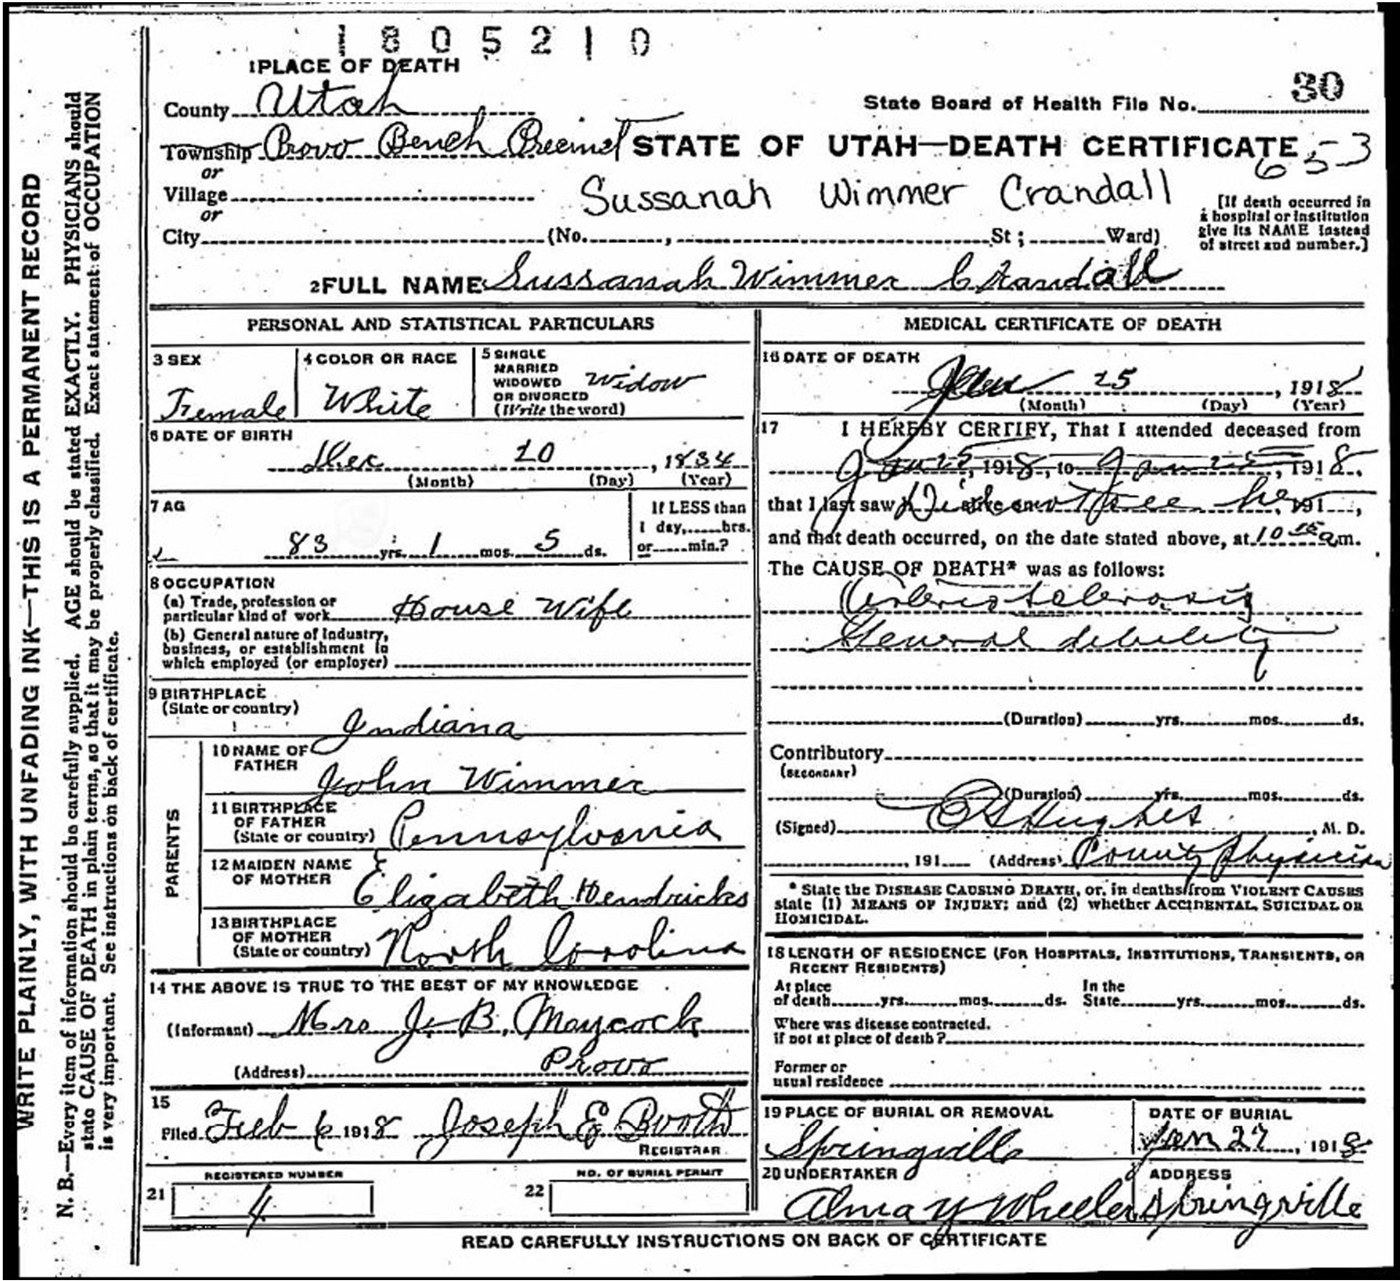 1 8 0 5 2 1 0
1 PLACE OF DEATH
County Utah
State Board of Health File No. 30
Township Provo Bench Precinct
STATE OF UTAH—DEATH CERTIFICATE 653
or
Village
Sussanah Wimmer Crandall
or
City (No. , St ; Ward)
[If death occurred in
a hospital or institution
give its NAME instead
of street and number.]
2 FULL NAME Sussanah Wimmer Crandall
PERSONAL AND STATISTICAL PARTICULARS
3 SEX
Female
4 COLOR OR RACE
White
5 SINGLE
MARRIED
WIDOWED
OR DIVORCED
(Write the word)
Widow
6 DATE OF BIRTH
Dec 20, 1834
(Month) (Day) (Year)
7 AG
83 yrs. 1 mos. 5 ds.
If LESS than
1 day, hrs.
or min.?
8 OCCUPATION
(a) Trade, profession or
particular kind of work House Wife
(b) General nature of Industry,
business, or establishment in
which employed (or employer)
9 BIRTHPLACE
(State or country)
Indiana
PARENTS
10 NAME OF
FATHER
John Wimmer
11 BIRTHPLACE
OF FATHER
(State or country)
Pennsylvania
12 MAIDEN NAME
OF MOTHER
Elizabeth Hendricks
13 BIRTHPLACE
OF MOTHER
(State or country)
North Carolina
14 THE ABOVE IS TRUE TO THE BEST OF MY KNOWLEDGE
(Informant) Mrs J. B. Maycock
(Address) Provo
15
Filed Feb 6 1918 Joseph E Booth
REGISTRAR.
REGISTERED NUMBER
21 4
NO. OF BURIAL PERMIT
22
MEDICAL CERTIFICATE OF DEATH
16 DATE OF DEATH
Jan 25, 1918
(Month) (Day) (Year)
17 I HEREBY CERTIFY, That I attended deceased from
Jan 25, 1918, to Jan 25, 1918,
that I last saw h alive on , 191 ,
Did not see her
and that death occurred, on the date stated above, at 10 15 a m.
The CAUSE OF DEATH* was as follows:
Arteriosclerosis
General debility
(Duration) yrs. mos. ds.
Contributory
(SECONDARY)
(Duration) yrs. mos. ds.
(Signed) Hughes, M. D.
, 191 (Address) County Physician
* State the DISEASE CAUSING DEATH, or, in deaths from VIOLENT CAUSES
state (1) MEANS OF INJURY; and (2) whether ACCIDENTAL, SUICIDAL OR
HOMICIDAL.
18 LENGTH OF RESIDENCE (FOR HOSPITALS, INSTITUTIONS, TRANSIENTS, OR
RECENT RESIDENTS)
At place
of death yrs. mos. ds.
In the
State yrs. mos. ds.
Where was disease contracted.
if not at place of death?
Former or
usual residence
19 PLACE OF BURIAL OR REMOVAL
Springville
DATE OF BURIAL
Jan 27, 1918
20 UNDERTAKER
Alma Y Wheeler
ADDRESS
Springville
READ CAREFULLY INSTRUCTIONS ON BACK OF CERTIFICATE
WRITE PLAINLY, WITH UNFADING INK—THIS IS A PERMANENT RECORD
N. B.—Every item of information should be carefully supplied. AGE should be stated EXACTLY. PHYSICIANS should
state CAUSE OF DEATH in plain terms, so that it may be properly classified. Exact statement of OCCUPATION
is very important. See instructions on back of certificate.